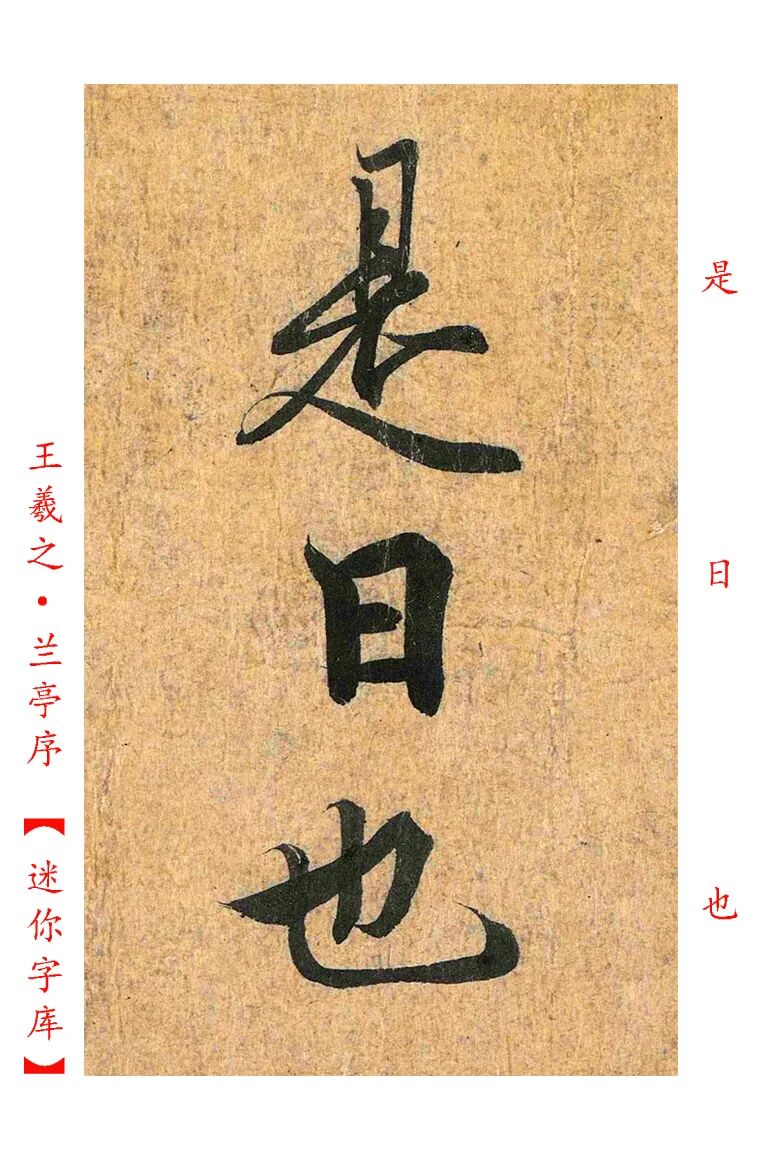 是日也
是日也
王羲之·兰亭序【迷你字库】